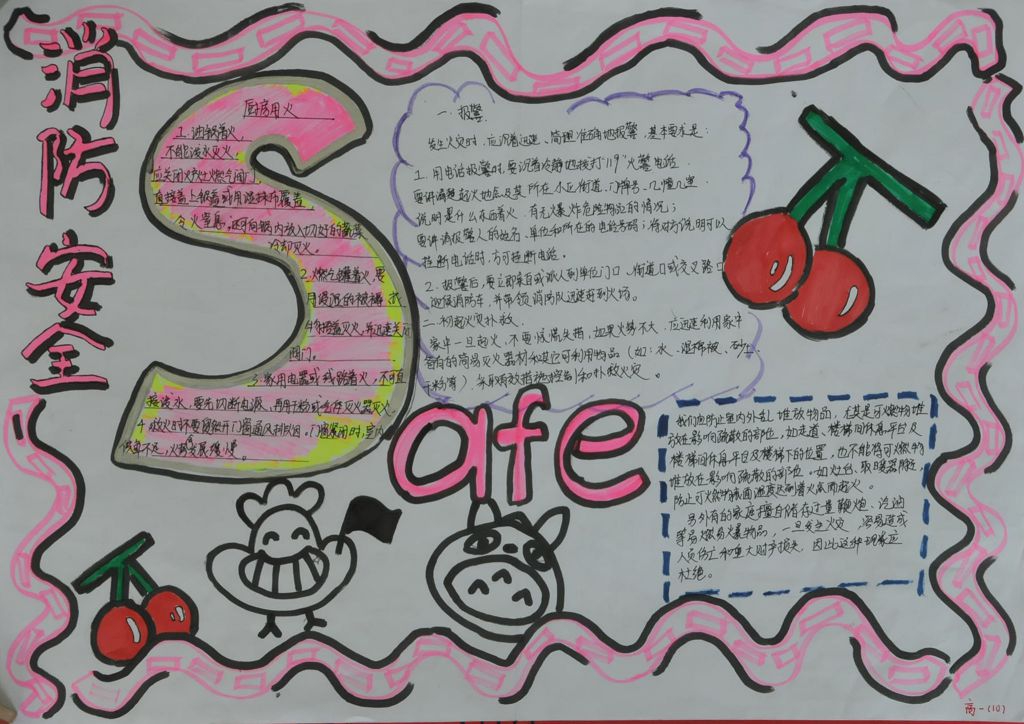 消防安全
厨房用火
1.油锅着火,
不能泼水灭火,
应关闭炉灶燃气阀门,
直接盖上锅盖或用湿抹布覆盖,
令火窒息,还可向锅内放入切好的蔬菜
冷却灭火。
2.燃气罐着火,要
用浸湿的被褥、衣
物捂盖灭火,并迅速关闭
阀门。
3.家用电器或线路着火,不可直
接泼水,要先切断电源,再用干粉或气体灭火器灭火。
4.救火时不要贸然开门窗
门窗紧闭时,室内
供氧不足,火势发展缓慢。
Safe
一、报警
发生火灾时,应沉着迅速、简理准确地报警,基本要求是:
1.用电话报警时,要沉着冷静地拨打"119"火警电话,
要讲清楚起火地点及其所在小区街道、门牌号、几幢几室,
说明是什么东西着火,有无爆炸危险物品的情况;
要讲清报警人的姓名、单位和所在的电话号码;待对方说明可以
挂断电话时,方可挂断电话。
2.报警后,要立即亲自或派人到单位门口、街道口或交叉路口
迎候消防车,并带领消防队迅速赶到火场。
二、初起火灾扑救
家中一旦起火,不要惊慌失措,如果火势不大,应迅速利用家中
备有的简易灭火器材和其它可利用物品(如:水、湿棉被、砂土、
干粉等)采取有效措施控制和扑救火灾。
我们应防止室内外乱堆放物品,尤其是可燃物堆
放在影响疏散的部位,如走道、楼梯间休息平台及
楼梯间休息平台及楼梯下的位置,也不能将可燃物
堆放在影响疏散的部位。如灶台、取暖器附近,
防止可燃物表面温度达到着火点而起火。
另外有的家庭擅自储存过量鞭炮、汽油
等易燃易爆物品,一旦发生火灾,容易造成
人员伤亡和重大财产损失,因此这种现象应
杜绝。
高一(10)